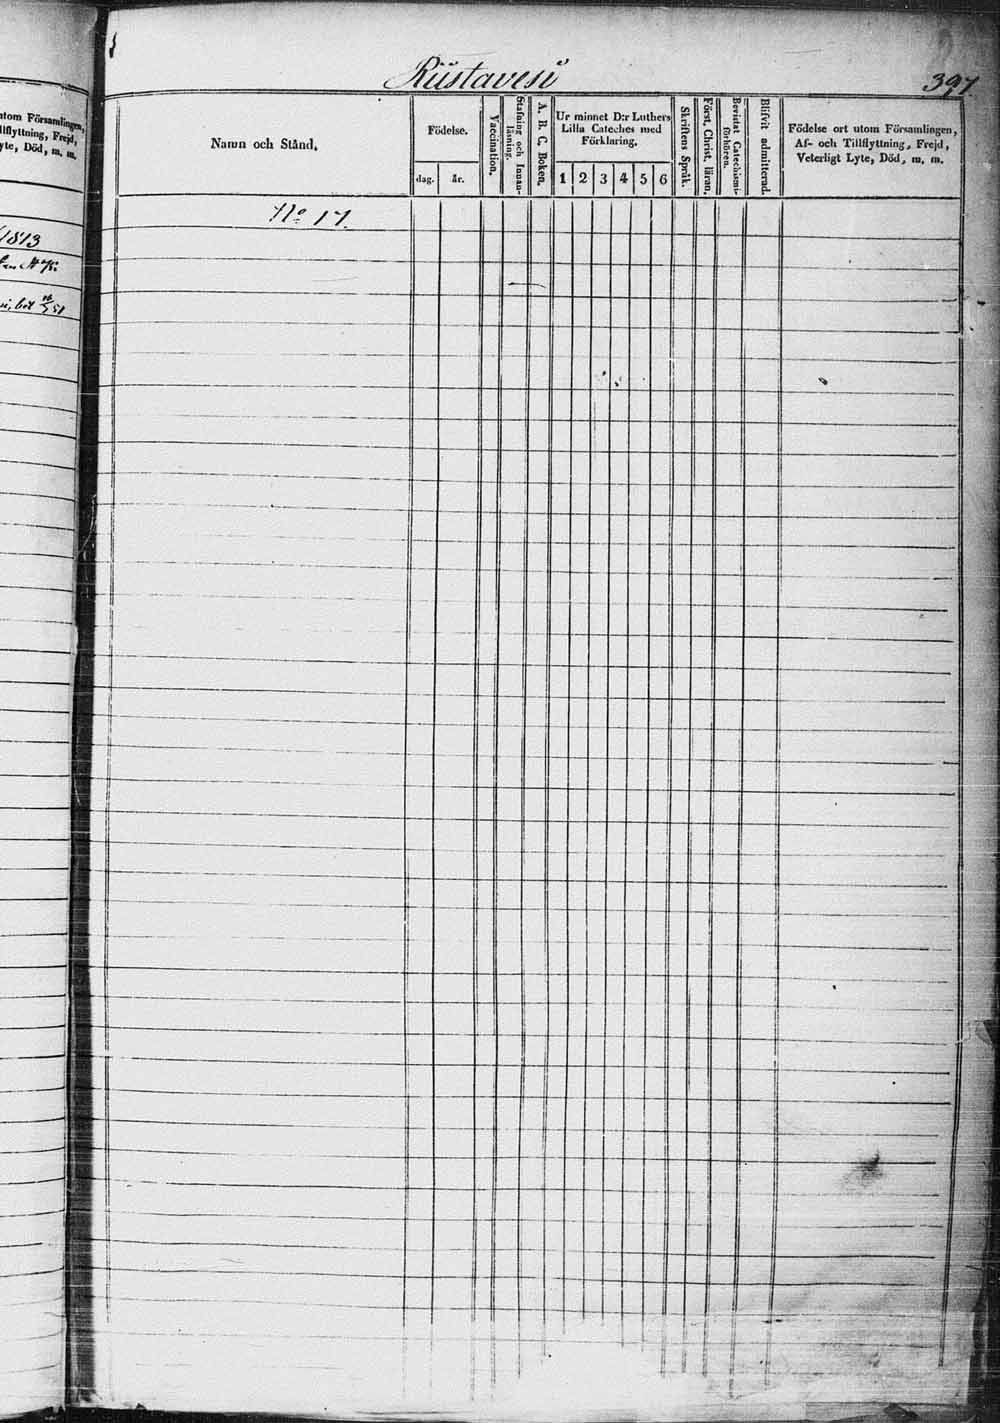 Rüstavesi
397
Namn och Stånd.
Födelse.
dag.
år.
Vaccination.
Stafning och Innan-
läsning.
A. B. C. Boken.
Ur minnet D:r Luthers
Lilla Cateches med
Förklaring.
1 2 3 4 5 6
Skriftens Språk.
Först. Christ. läran.
Bevistat Catechismi-
förhören.
Blifvit admitterad.
Födelse ort utom Församlingen,
Af- och Tillflyttning, Frejd,
Veterligt Lyte, Död, m. m.
No 17.
utom Församlingen,
Tillflyttning, Frejd,
Lyte, Död, m. m.
1813